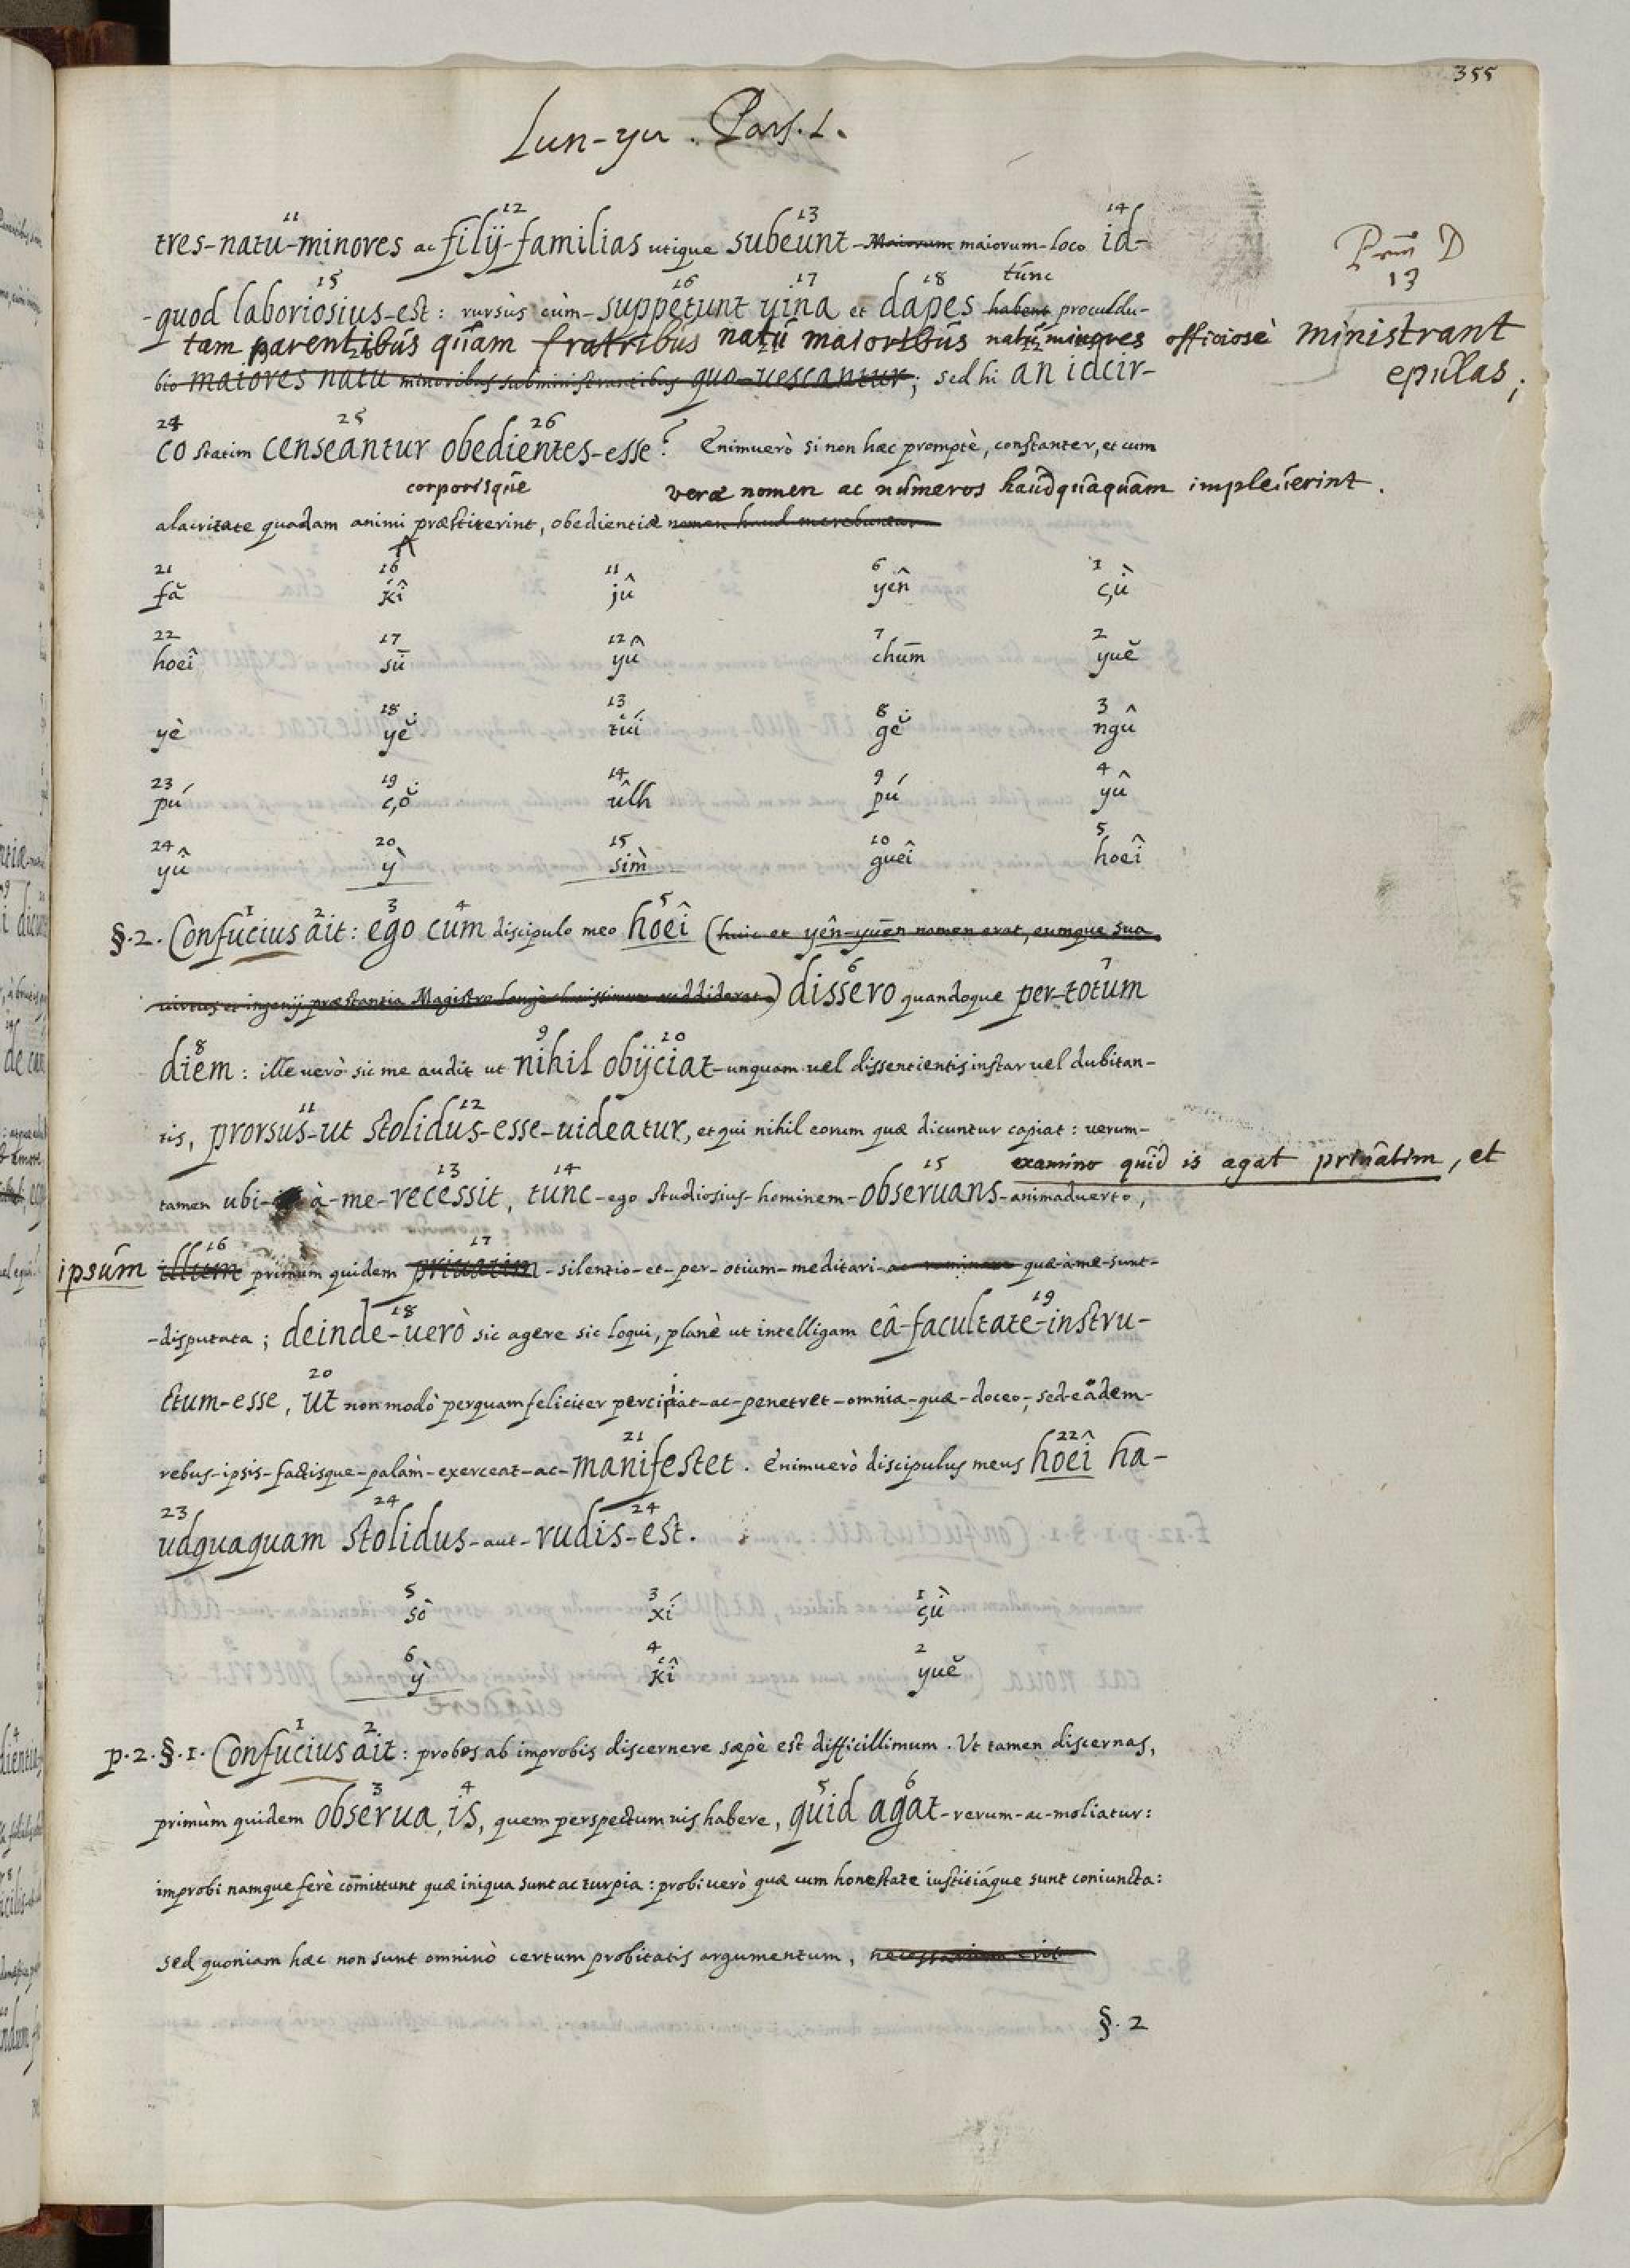 355
Lun-yu. Pars. I.
11 12 13 14
tres-natu-minores ac filij-familias utique subeunt-Maiorum maiorum-loco id-
Pnũ D
13
15 16 17 18 tunc
-quod laboriosius-est: rursùs cùm-suppetunt vina et dapes habent proculdu-
tam parentibus quam fratribus natu maioribus natu minores officiosè ministrant
epulas;
bio maiores natu minoribus subministrantibus quo-uescantur; sed hi an idcir-
24 25 26
co statim censeantur obedientes-esse? Enimuerò si non hæc promptè, constanter, et cum
corporisque veræ nomen ac numeros haudquaquam impleverint.
alacritate quadam animi præstiterint, obedientiæ nomen haud merebuntur
21 16 11 6 1
fă k̂î jû yên çù
22 17 12 7 2
hoeî sū yû chum̄ yuĕ
18 13 8 3
yè yĕ túi gĕ ngû
23 19 14 9 4
pú çŏ ûlh pú yû
24 20 15 10 5
yû ỳ sim̀ gueî hoeî
1 2 3 4 5
§.2. Confucius ait: ego cum discipulo meo hoeî (huic et yên-yuēn nomen erat, eumque sua
6 7
virtus et ingenij præstantia Magistro longè charissimum reddiderat) dissero quandoque per-totum
8 9 10
diem: ille uerò sic me audit ut nihil obijciat-unquam uel dissentientis instar uel dubitan-
11 12
tis, prorsus-ut stolidus-esse-uideatur, et qui nihil eorum quæ dicuntur capiat: uerum-
examino quid is agat privatim, et
13 14 15
tamen ubi- à-me-recessit, tunc-ego studiosius-hominem-observans-animaduerto,
16 17
ipsum illum primum quidem priuatim-silentio-et-per-otium-meditari-ac ruminare quæ-à-me-sunt-
18 19
-disputata; deinde-uerò sic agere sic loqui, planè ut intelligam eâ-facultate-instru-
20
ctum-esse, ut non modò perquam feliciter percipiat-ac-penetret-omnia-quæ-doceo-, sed-eadem-
21 22
rebus-ipsis-factisque-palàm-exerceat-ac-manifestet. Enimuerò discipulus meus hoeî ha-
23 24 24
udquaquam stolidus-aut-rudis-est.
5 3 1
sò xí çù
6 4 2
ỳ k̂î yuĕ
1 2
p.2.§.1. Confucius ait: probos ab improbis discernere sæpè est difficillimum. Ut tamen discernas,
3 4 5 6
primùm quidem observa, is, quem perspectum uis habere, quid agat-rerum-ac-moliatur:
improbi namque ferè com̄ittunt quæ iniqua sunt ac turpia: probi uerò quæ cum honestate iustitiáque sunt coniuncta:
sed quoniam hæc non sunt omninò certum probitatis argumentum, necessarium erit
§.2